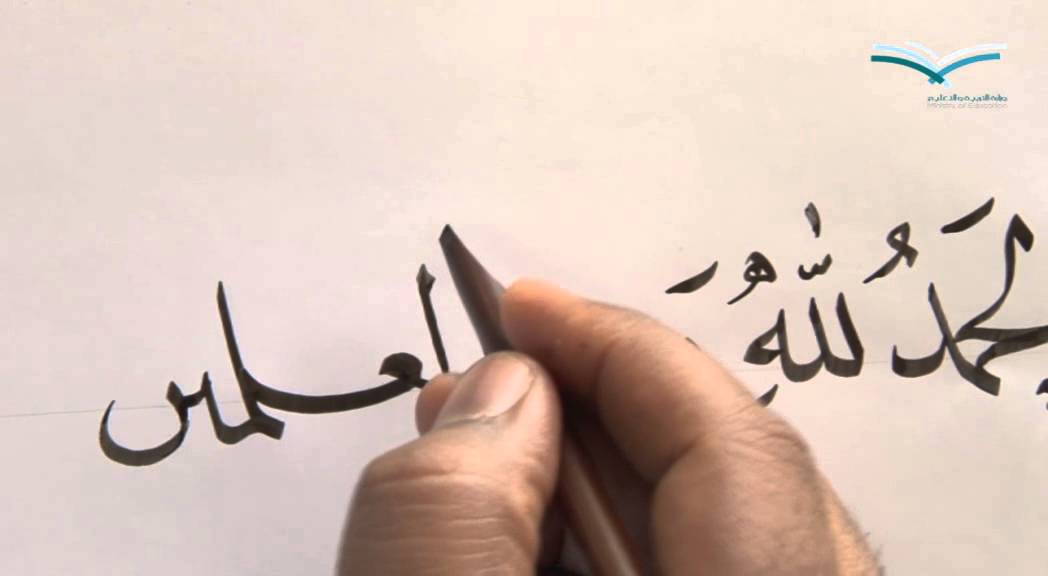 وزارة التربية والتعليم
Ministry of Education
الحَمدُ للّٰهِ العلمين